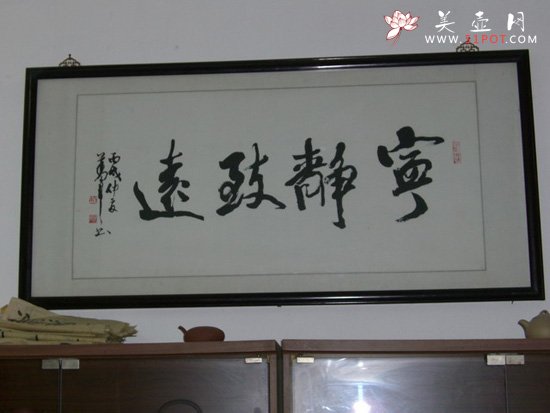 美壶网
WWW.51POT.COM
寧靜致遠
丙戌仲夏
书